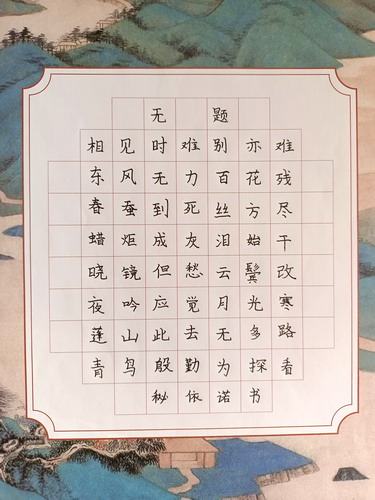 无题
相见时难别亦难
东风无力百花残
春蚕到死丝方尽
蜡炬成灰泪始干
晓镜但愁云鬓改
夜吟应觉月光寒
蓬山此去无多路
青鸟殷勤为探看
秘依诺书